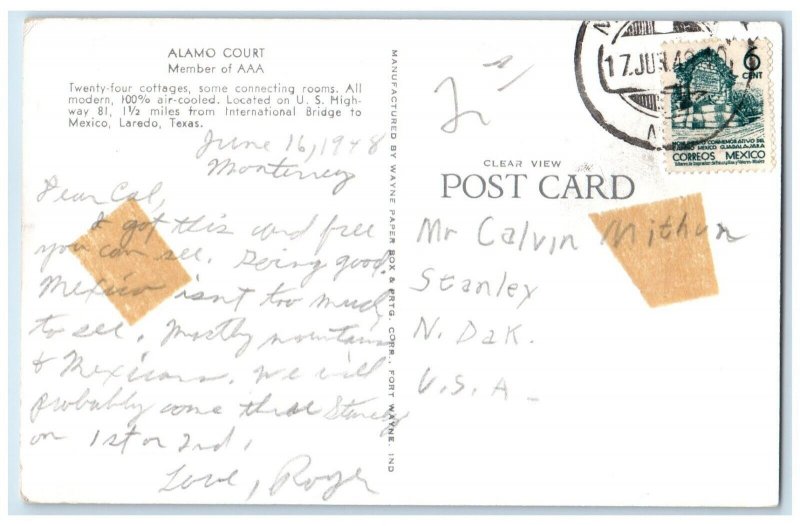 ALAMO COURT
Member of AAA
Twenty-four cottages, some connecting rooms. All
modern, 100% air-cooled. Located on U. S. High-
way 81, 1½ miles from International Bridge to
Mexico, Laredo, Texas.
June 16, 1948
Monterrey
Dear Cal,
I got this card free
you can see. Going good.
Mexico isn't too much
to see. Mostly mountains
& Mexicans. We will
probably come thru Stanley
on 1st or 2nd.
Love, Roger
MANUFACTURED BY WAYNE PAPER BOX & PRTG. CORP., FORT WAYNE, IND
CLEAR VIEW
POST CARD
Mr Calvin Mithun
Stanley
N. Dak.
U.S.A.
17.JUN.48
6
CENT
CORREOS MEXICO